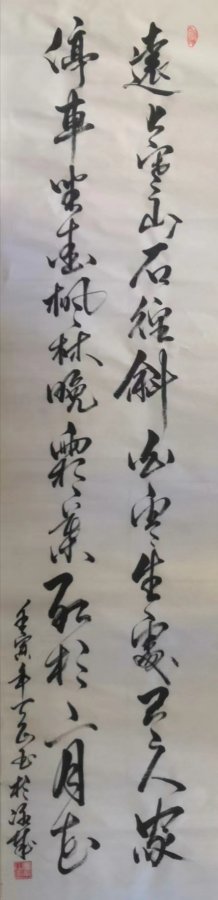 遠上寒山石徑斜白雲生處有人家
停車坐愛楓林晚霜葉紅於二月花
壬寅年书於